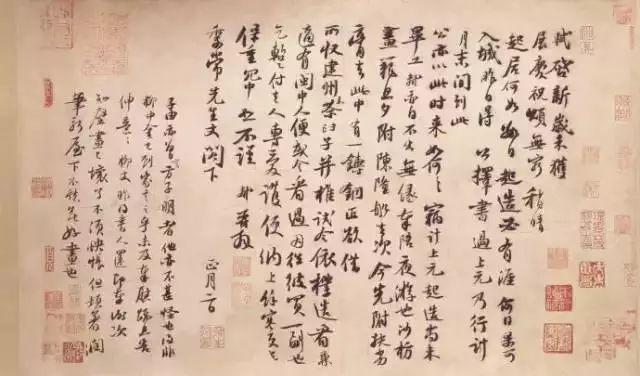 軾啓新歲未獲
展慶祝頌無窮稍晴
起居何如數日起造必有涯何日果可
入城昨日得公擇書過上元乃行計
月末間到此
公亦以此時来如何〻竊計上元起造尚未
畢工軾亦自不出無緣奉陪夜游也沙枋
畫籠旦夕附陳隆船去次今先附扶劣
膏去此中有一鑄銅匠欲借
所收建州木茶臼子并椎試令依樣造看兼
適有閩中人便或令看過因往彼買一副也
乞暫付去人專愛護便納上餘寒更乞
保重冗中恕不謹軾再拜
季常先生丈閣下
正月二日
子由亦曾言方子明者他亦不甚怪也得非
柳中舍已到家言之乎未及奉慰疏且告
伸意〻柳丈昨得書人還即奉謝次
知壁畫已壞了不須怏悵但頓著潤
筆新屋下不愁無好畫也